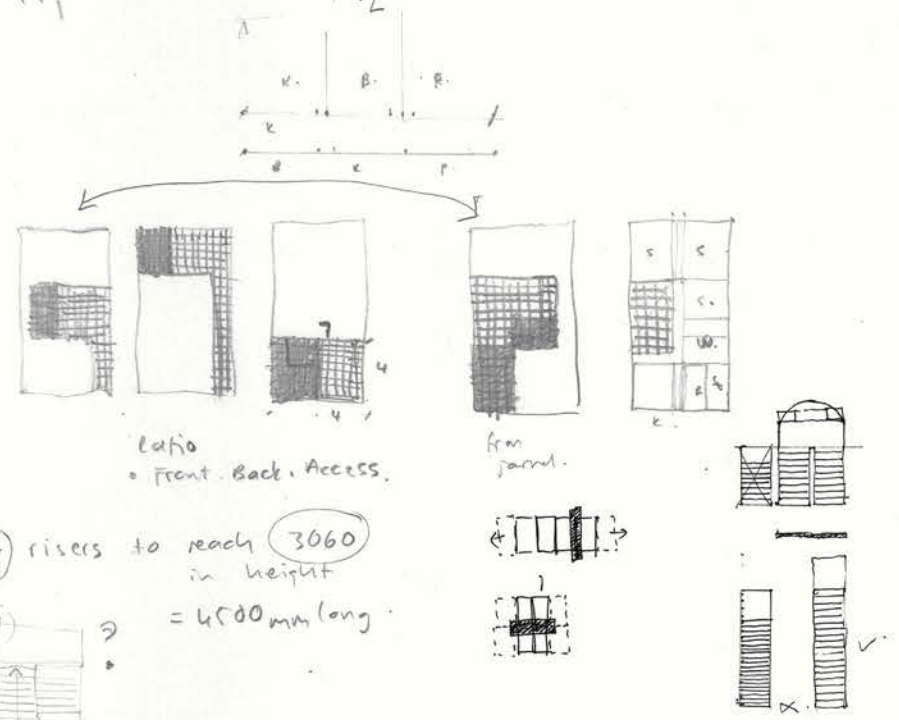 K. B. R.
K
B K P.
S S
7
S.
4
W.
4
B
K.
Ratio
• Front. Back. Access.
from
risers to reach 3060
in height
= 4500 mm long.
?